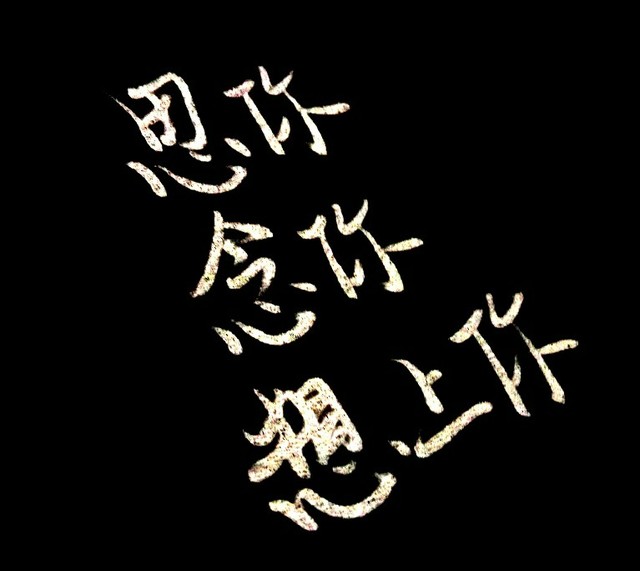 思你
念你
想上你